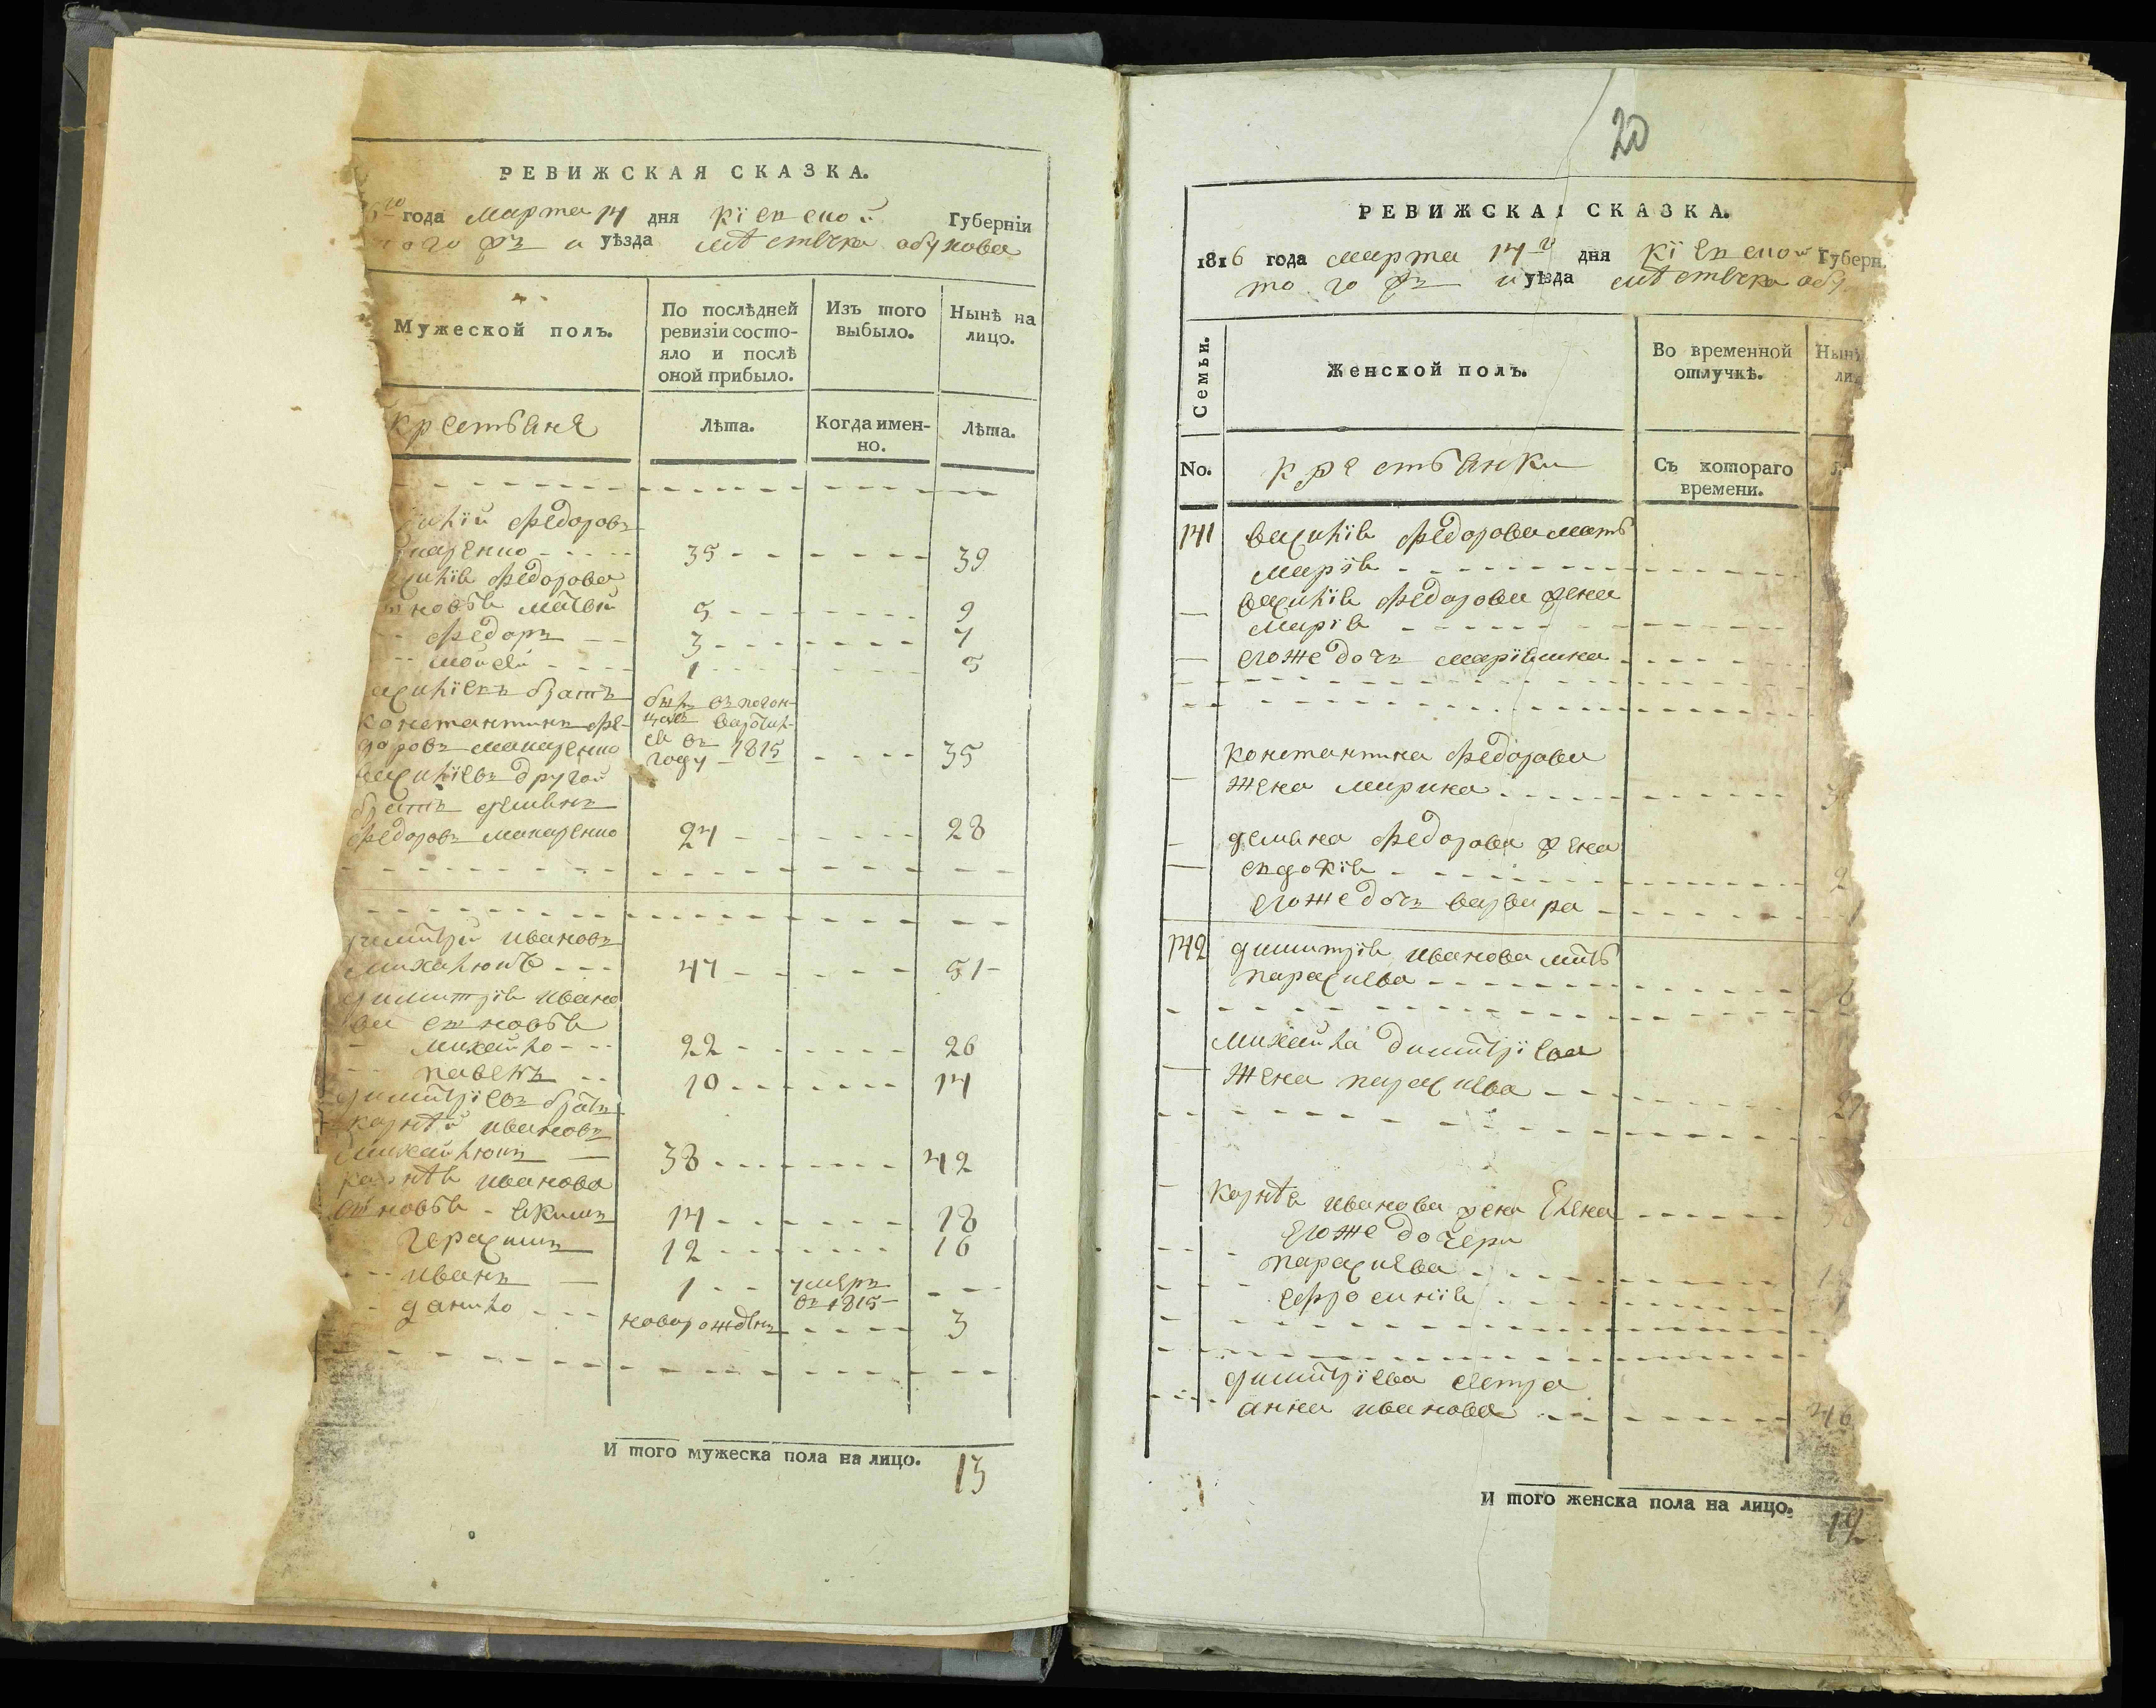 РЕВИЖСКАЯ СКАЗКА.
6го года марта 14 дня Кіевской Губерніи
того жъ и уѣзда мѣстечка обухова
Мужеской полъ.
По послѣдней ревизіи состо-
яло и послѣ
оной прибыло.
Изъ того
выбыло.
Нынѣ на
лицо.
крестьяня
Лѣта.
Когда имен-
но.
Лѣта.
Федоровъ
35 39
Федорова
матвій 5 9
федоръ 3 7
мойсей 1 5
братъ
константинъ Фе-
доровъ макаренко
въ 1815
году 35
другой
братъ демянъ
Федоровъ макаренко 24 28
димитрій ивановъ
михайлюкъ 47 51
димитрія ивано
ва сыновья
михайло 22 26
павелъ 10 14
димитріевъ братъ
корнѣй ивановъ
михайлюкъ 38 42
корнѣя иванова
сыновья якимъ 14 18
герасимъ 12 16
иванъ 1 умеръ
въ 1815
данило новорожденъ 3
И того мужеска пола на лицо. 13
20
РЕВИЖСКАЯ СКАЗКА.
1816 года марта 14го дня Кіевской Губерн
того жъ и уѣзда мѣстечка обу
Семьи.
Женской полъ.
Во временной
отлучкѣ.
Нынѣ
ли
No.
крестьянки
Съ котораго
времени.
141 Федорова мать
марія
Федорова жена
марія
егоже дочь маріянна
константина Федорова
жена марина
демяна Федорова жена
евдокія 2
егоже дочь варвара 1
142 димитрія иванова мать
параскева 6
михайла димитріева
жена параскева 2
корнѣя иванова жена Елена
егоже дочери
параскева 1
ефросинія
димитріева сестра
анна иванова 46
И того женска пола на лицо. 12